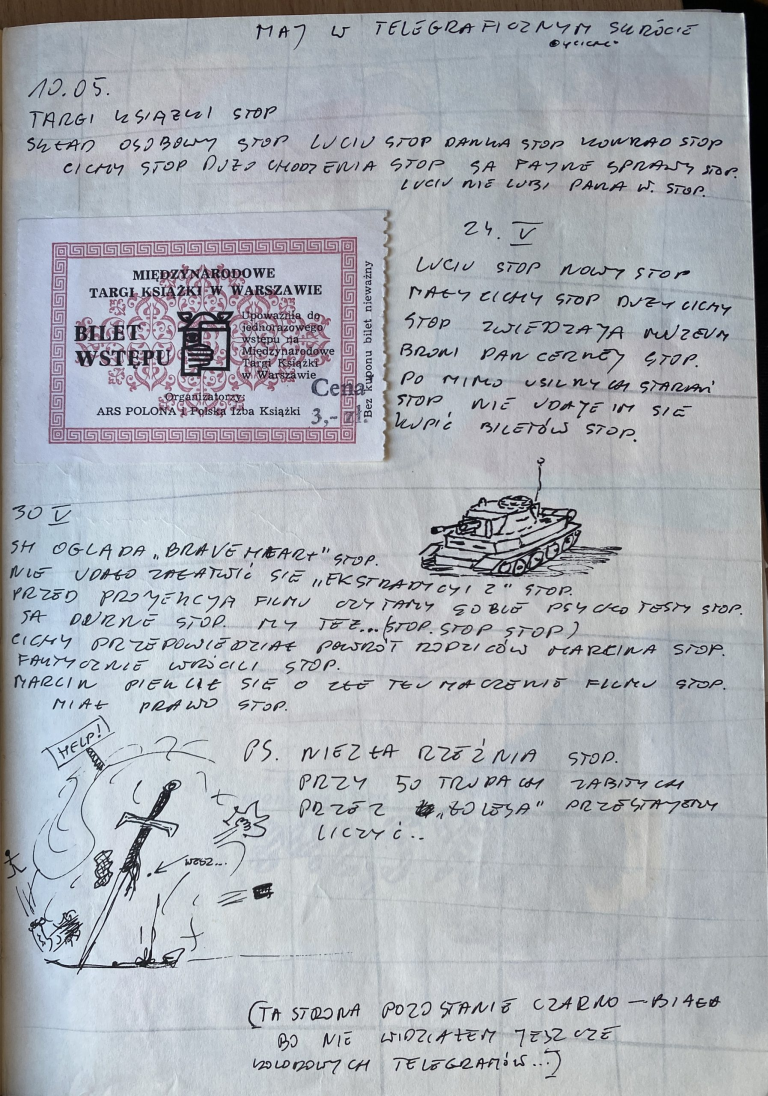 MAJ W TELEGRAFICZNYM SKRÓCIE
10.05.
TARGI KSIĄŻKI STOP
SKŁAD OSOBOWY STOP LUCIU STOP DANKA STOP KONRAD STOP
CICHY STOP DUŻO CHODZENIA STOP SĄ FAJNE SPRAWY STOP.
LUCIU NIE LUBI PANA W. STOP.
MIĘDZYNARODOWE
TARGI KSIĄŻKI W WARSZAWIE
BILET
WSTĘPU
Upoważnia do
jednorazowego
wstępu na
Międzynarodowe
Targi Książki
w Warszawie
Organizatorzy:
ARS POLONA i Polska Izba Książki
Cena
3,- zł.
Bez kuponu bilet nieważny
24. V
LUCIU STOP NOWY STOP
MAŁY CICHY STOP DUŻY CICHY
STOP ZWIEDZAJĄ MUZEUM
BRONI PANCERNEJ STOP.
PO MIMO USILNYCH STARAŃ
STOP NIE UDAJE IM SIĘ
KUPIĆ BILETÓW STOP.
30 V
SH OGLĄDA „BRAVE HEART" STOP.
NIE UDAŁO ZAŁATWIĆ SIĘ „EKSTRADYCJI 2" STOP.
PRZED PROJEKCJĄ FILMU CZYTAMY SOBIE PSYCHO TESTY STOP.
SĄ DURNE STOP. MY TEŻ... (STOP. STOP STOP)
CICHY PRZEPOWIEDZIAŁ POWRÓT RODZICÓW MARCINA STOP.
FAKTYCZNIE WRÓCILI STOP.
MARCIN PIEKLIŁ SIĘ O ZŁE TŁUMACZENIE FILMU STOP.
MIAŁ PRAWO STOP.
HELP!
PS. NIEZŁA RZEŹNIA STOP.
PRZY 50 TRUPACH ZABITYCH
PRZEZ „ŁOLESA" PRZESTAJEMY
LICZYĆ..
(TA STRONA POZOSTANIE CZARNO-BIAŁA
BO NIE WIDZIAŁEM JESZCZE
KOLOROWYCH TELEGRAMÓW...)